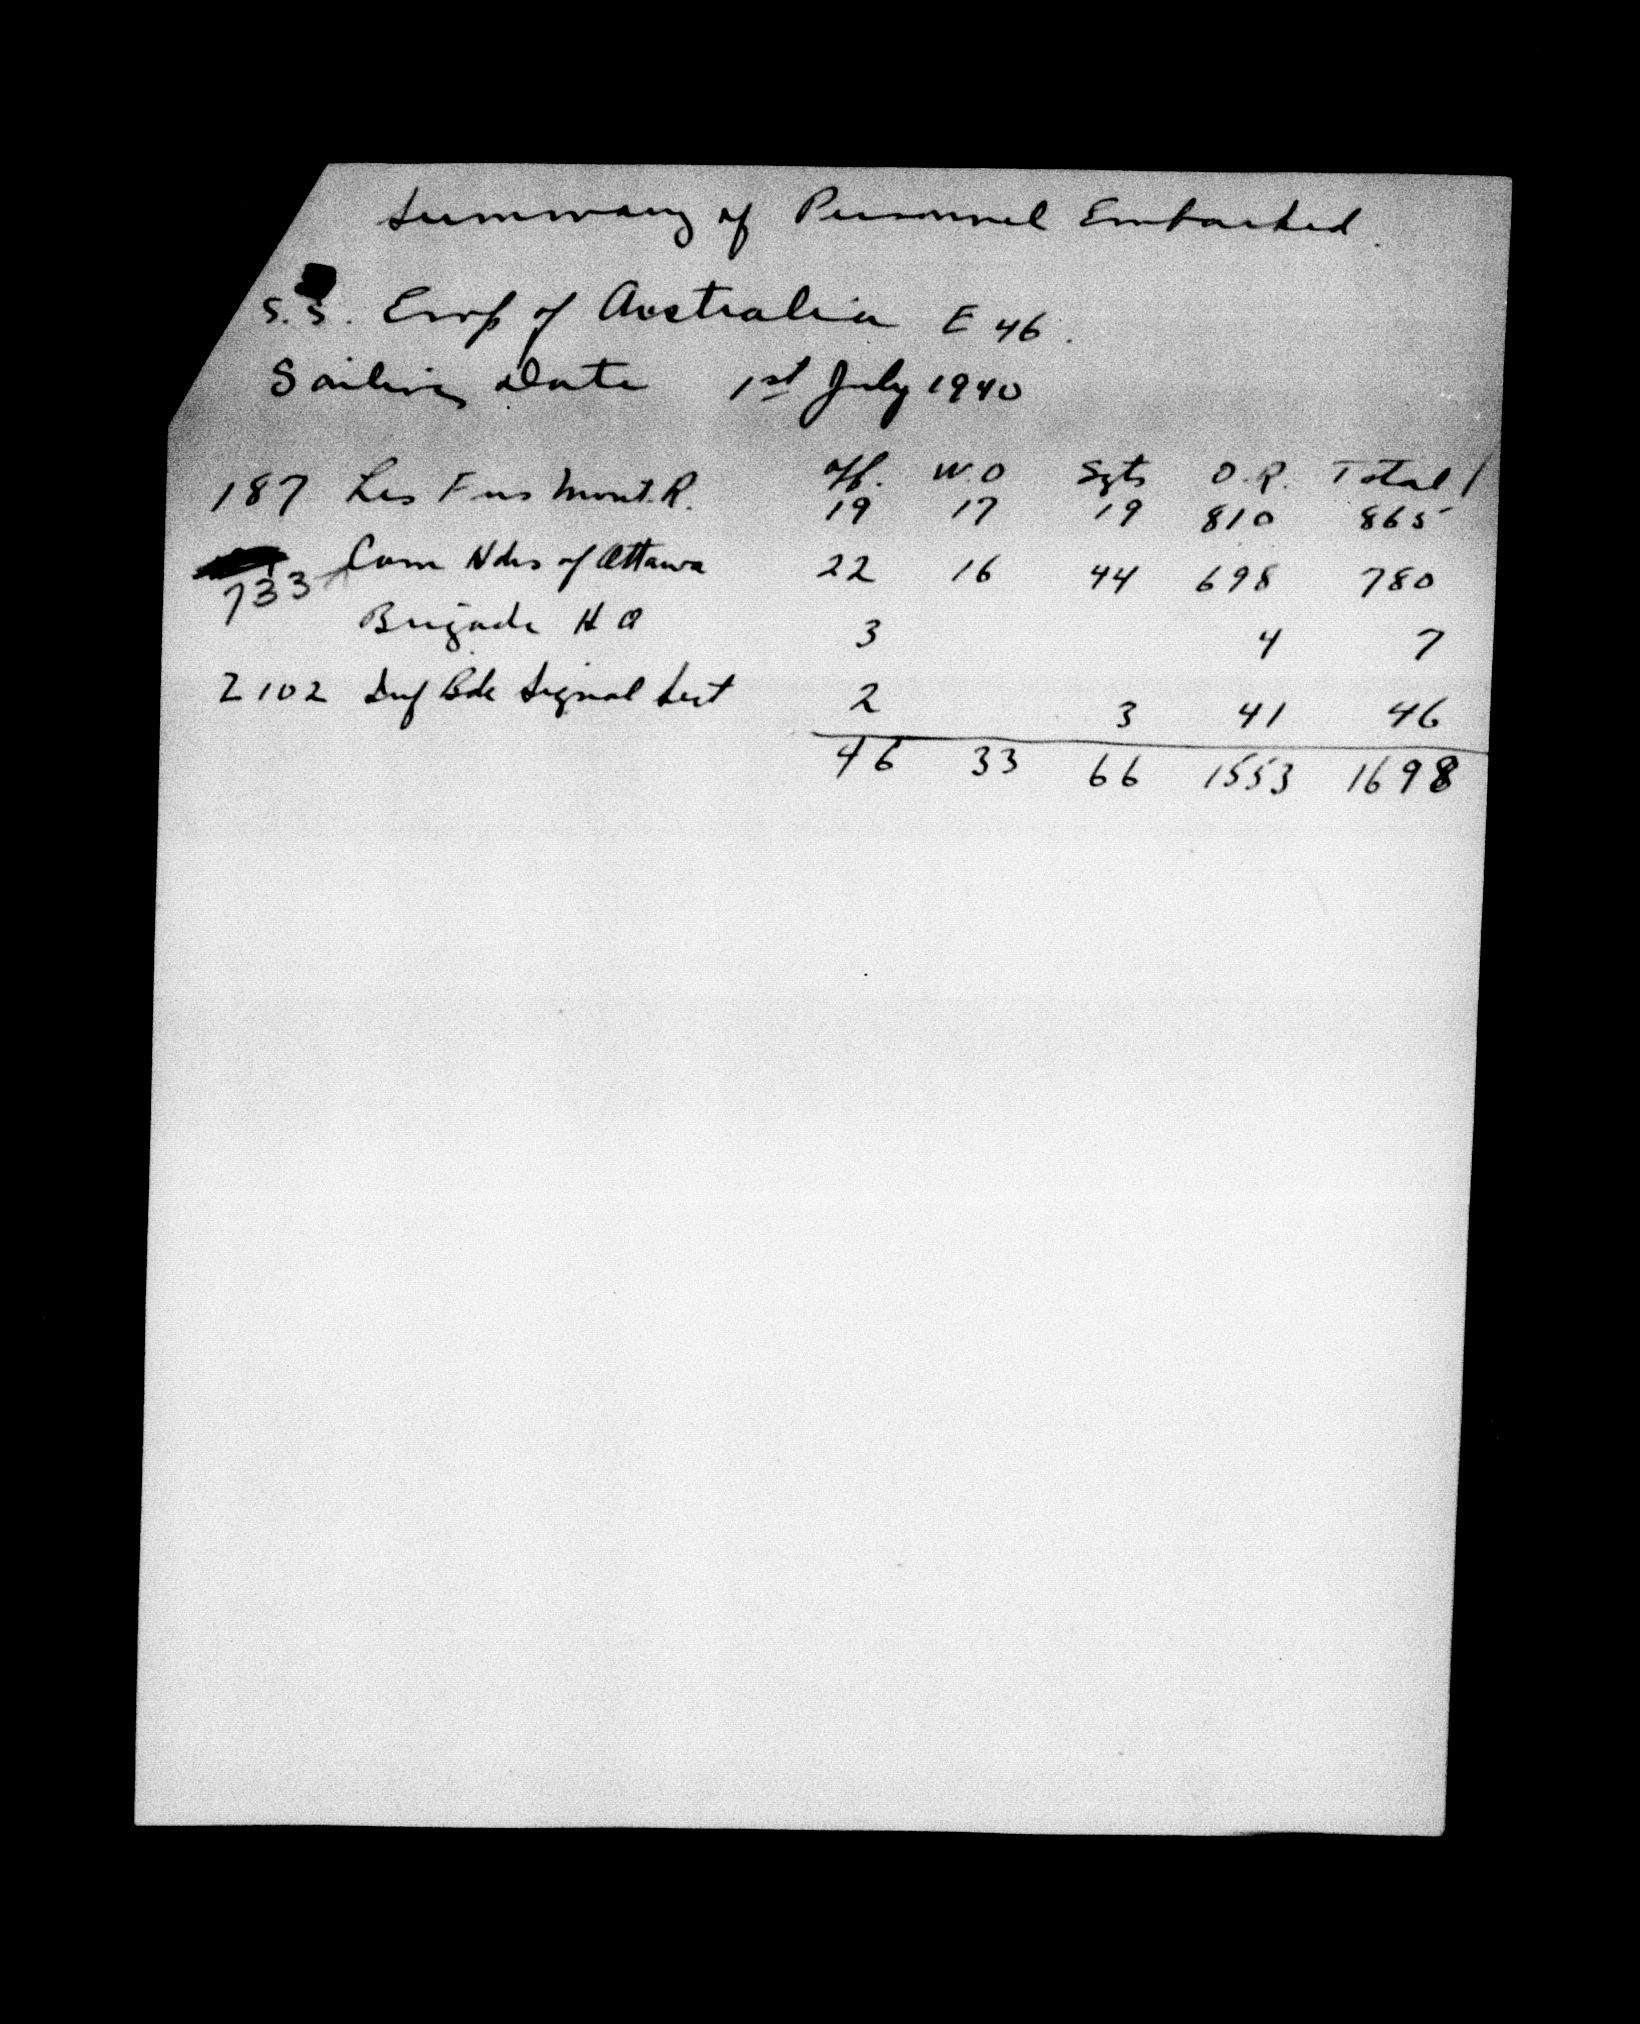 Summary of Personnel Embarked.
S.S. Emp of Australia E 46.
Sailing Date 1st July 1940
Off. W.O Sgts O.R. Total
187 Les Fus Mont. R. 19 17 19 810 865
Cam Hdrs of Ottawa 22 16 44 698 780
733
Brigade H Q 3 4 7
2102 Inf Bde Signal Sect 2 3 41 46
46 33 66 1553 1698